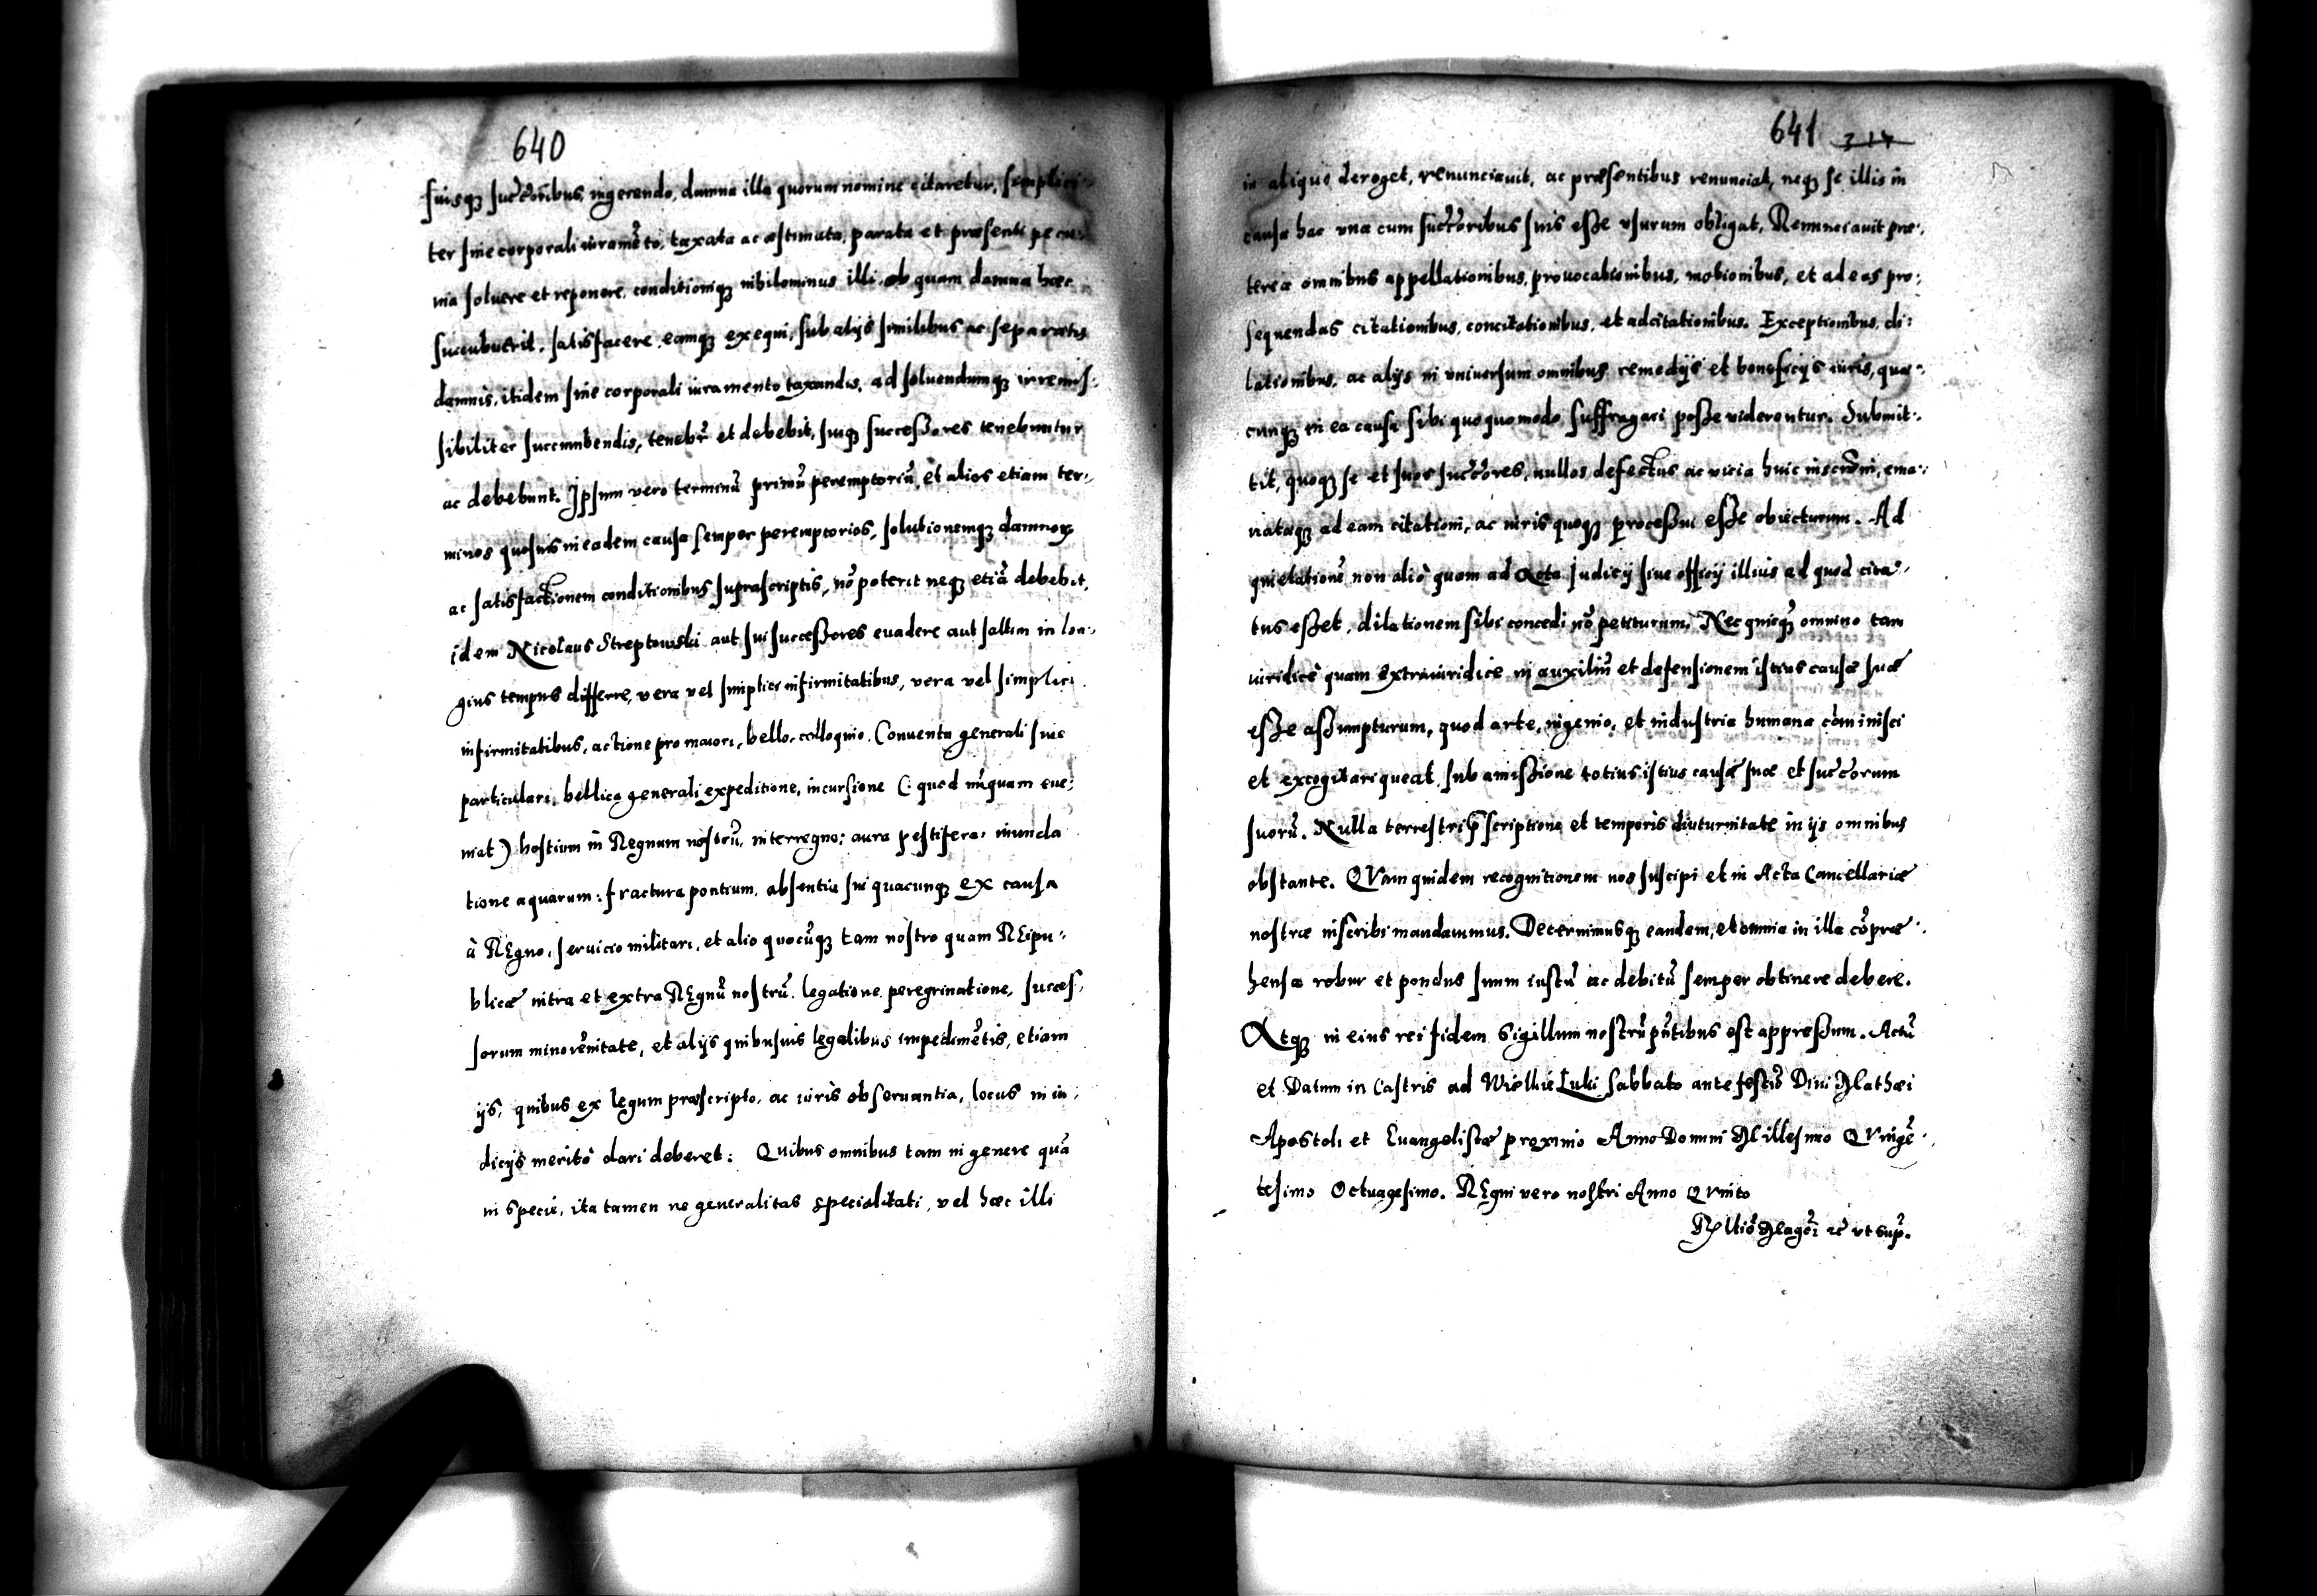 640
suisq̃ succ̃oribus, ingerendo, damna illa quorum nomine citaretur, simplici-
ter sine corporali iuramẽto, taxata ac æstimata, parata et præsenti pecu-
nia soluere et reponere, conditioniq̃ nihilominus illi, ob quam damna hæc
succubuerit, satisfacere, eamq̃ exequi, sub alijs similibus ac separatis
damnis, itidem sine corporali iuramento taxandis, ad soluendumq̃ irremis-
sibiliter succumbendis, tenebr̃ et debebit, suiq̃ successores tenebuntur
ac debebunt. Ipsum vero terminũ primũ peremptoriũ, et alios etiam ter-
minos quosuis in eadem causa semper peremptorios, solutionemq̃ damnoꝝ
ac satisfactionem conditionibus suprascriptis, nõ poterit neq̃ etiã debebit,
idem Nicolaus Streptowski aut sui successores euadere aut saltim in lon-
gius tempus differre, vera vel simplici infirmitatibus, vera vel simplici
infirmitatibus, actione pro maiori, bello, colloquio, Conuentu generali siue
particulari, bellica generali expeditione, incursione (: quod nũquam eue-
niat) hostium in Regnum nostrũ, interregno: aura pestifera, inunda
tione aquarum: fractura pontium, absentia sui quacunq̃ ex causa
à REgno, seruicio militari, et alio quocũq̃ tam nostro quam REipu-
blicæ intra et extra REgnũ nostrũ, legatione peregrinatione, succes-
sorum minorẽnitate, et alijs quibusuis legalibus impedimẽtis, etiam
ijs, quibus ex legum præscripto, ac iuris obseruantia, locus in iu-
dicijs meritò dari deberet: Quibus omnibus tam in genere quã
in specie, ita tamen ne generalitas specialitati, vel hæc illi
641 317
in aliquo deroget, renunciauit, ac præsentibus renunciat, neq̃ se illis in
causa hac vna cum succ̃oribus suis esse vsurum obligat, Renunciauit præ-
terea omnibus appellationibus, prouocationibus, motionibus, et ad eas pro-
sequendas citationibus, concitationibus, et adcitationibus. Exceptionibus, di-
lationibus, ac alijs in vniuersum omnibus remedijs et beneficijs iuris, quæ-
cunq̃ in ea causa sibi quoquomodo suffragari posse viderentur. Submit-
tit, quoq̃ se et suos succ̃ores, nullos defectus ac vicia huic inscriptioni, ema-
nataq̃ ad eam citationi, ac iuris quoq̃ processui esse obiecturum. Ad
quietationẽ non aliò quam ad Acta Judicij siue officij illius ad quod cita-
tus esset, dilationem sibi concedi nõ petiturum, Nec quicq̃ omnino tam
iuridicè quam extraiuridicè in auxiliũ et defensionem istius causæ suæ
esse assumpturum, quod arte, ingenio, et industria humana cõminisci
et excogitari queat, sub amissione totius istius causæ suæ et succ̃orum
suorũ. Nulla terrestri p̃scriptione et temporis diuturnitate in ijs omnibus
obstante. QVam quidem recognitionem nos suscipi et in Acta Cancellariæ
nostræ inscribi mandauimus. Decernimusq̃ eandem, et omnia in illa cõpræ-
hensa robur et pondus suum iustũ ac debitũ semper obtinere debere.
Atq̃ in eius rei fidem Sigillum nostrũ pñtibus est appressum. Actũ
et Datum in Castris ad Wielkie Luki Sabbato ante festũ Diui Mathæi
Apostoli et Euangelistæ proximo Anno Domini Millesimo QVingẽ-
tesimo Octuagesimo. REgni vero nostri Anno QVinto